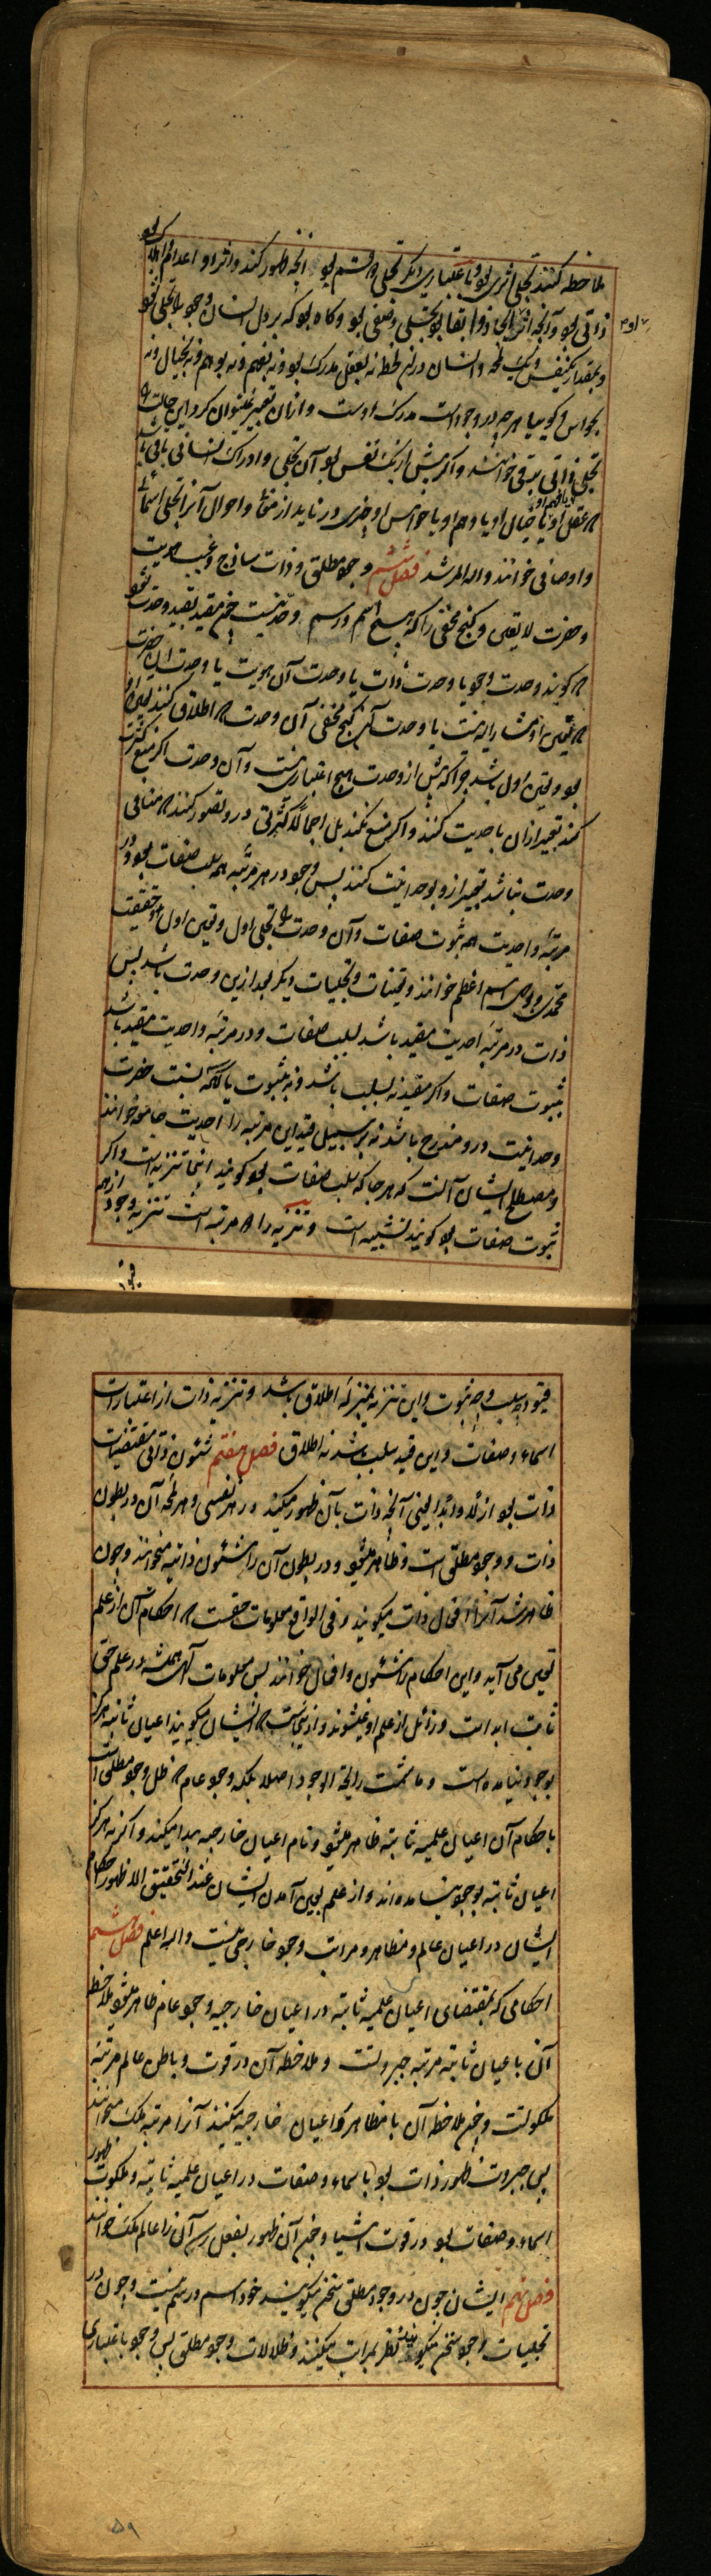 ملاحظه کنند تجلی اثری بود و باعتباری دیگر تجلی قسم بود آنچه ظهور کند و اثر او اعدام
ذاتی بود و آنچه اثر ایجاد و ابقا بود تجلی وصفی بود و گاه بود که بر دل انسان وجود بلا تجلی شود
و بمقدار یکنفس و یک لمحه و انسان در آن لحظه نه بعقل مدرک بود و نه بفهم و نه بوهم و نه بخیال و نه
بحواس و گویا هرچه در وجود است مدرک اوست و از آن تعبیر نمیتوان کرد و این حالت را
تجلی ذاتی برقی خوانند و اگر بیش از یک نفس بود آن تجلی و ادراک انسانی باقی باشد
عقل او یا فهم او یا خیال او یا وهم او یا حواس او چیزی دریابد از صفات و احوال آنرا تجلی اسمائی
و اوصافی خوانند و الله المرشد فصل ششم وجود مطلق و ذات ساذج و غیب هویت
و حضرت لا تعین و کنج مخفی را که هیچ اسم و رسم و حد نیست چون مقید بقید وحدت شود
گویند وحدت وجود یا وحدت ذات یا وحدت آن هویت یا وحدت این حضرت
تعین او مشار الیه نیست یا وحدت آن کنج مخفی آن وحدت اطلاق کنند تعین او
بود و تعین اول باشد چرا که پیش از وحدت هیچ اعتباری نیست و آن وحدت اگر منع کثرت
کند تعبیر از آن باحدیت کنند و اگر منع نکند بل اجمالاً کثرتی درو تصور کنند منافی
وحدت نباشد تعبیر ازو بوحدانیت کنند پس وجود در هر مرتبه همه سلب صفات بود و در
مرتبه واحدیت همه ثبوت صفات و آن وحدت را تجلی اول و تعین اول و حقیقت
محمدی و روح اسم اعظم خوانند و تعینات و تجلیات دیگر بعد ازین وحدت باشد پس
ذات در مرتبه احدیت مقید باشد بسلب صفات و در مرتبه واحدیت مقید باشد
بثبوت صفات و اگر مقید نه بسلب باشد و نه بثبوت یا آنکه نسبت حضرت
وحدانیت درو مندرج باشد نه بر سبیل قید این مرتبه را احدیت جامعه خوانند
و مصطلح ایشان آنست که هرجا که سلب صفات بود گویند اینجا تنزیه است و اگر
ثبوت صفات بود گویند تشبیه است و تنزیه را مرتبه است تنزیه وجود از همه
قیود
قیود چه سلب و چه ثبوت و این تنزیه بمنزله اطلاق باشد و تنزیه ذات از اعتبارات
اسماء و صفات و این قید سلب باشد نه اطلاق فصل هفتم شئون ذاتی مقتضیات
ذات بود ازلاً و ابداً یعنی آنچه ذات بآن ظهور میکند در هر نفسی و هر لمحه آن در بطون
ذات و وجود مطلق است و ظاهر میشود و در بطون آن را شئون ذاتیه میخوانند و چون
ظاهر شد آنرا افعال ذات میگویند و فی الواقع معلومات حقست احکام آن از علم
بعین می آید و این احکام را شئون و افعال خوانند پس معلومات الهی همیشه در علم حق
ثابت ابد است و زائل از علم او نمیشوند و ازینجاست ایشان میگویند اعیان ثابته هرگز
بوجود نیامده است و ما شمت رائحة الوجود اصلا بلکه وجود عام ظل وجود مطلق است
باحکام آن اعیان علمیه ثابته ظاهر میشود و نام اعیان خارجیه پیدا میکند و اگر نه هرگز
اعیان ثابته بوجود نیامده اند و از علم بعین آمدن ایشان عند التحقیق الا ظهور احکام
ایشان در اعیان عالم و مظاهر و مراتب وجود خارجی نیست و الله اعلم فصل هشتم
احکامی که بمقتضای اعیان علمیه ثابته در اعیان خارجیه وجود عام ظاهر میشود ملاحظه
آن باعیان ثابته مرتبه جبروتست و ملاحظه آن در قوت و باطن عالم مرتبه
ملکوتست و چون ملاحظه آن با مظاهر و اعیان خارجیه میکنند آنرا مرتبه ملک میخوانند
پس جبروت ظهور ذات بود باسماء و صفات در اعیان علمیه ثابته و ملکوت ظهور
اسماء و صفات بود در قوت اشیا و چون آن ظهور بفعل رسد آن را عالم ملک خوانند
فصل نهم ایشان چون در وجود مطلق سخن میگویند خود اسم و رسم نیست و چون در
تجلیات وجود سخن میگویند نظر بمراتب میکنند و ظلالات وجود مطلق پس وجود باعتباری
۵۹